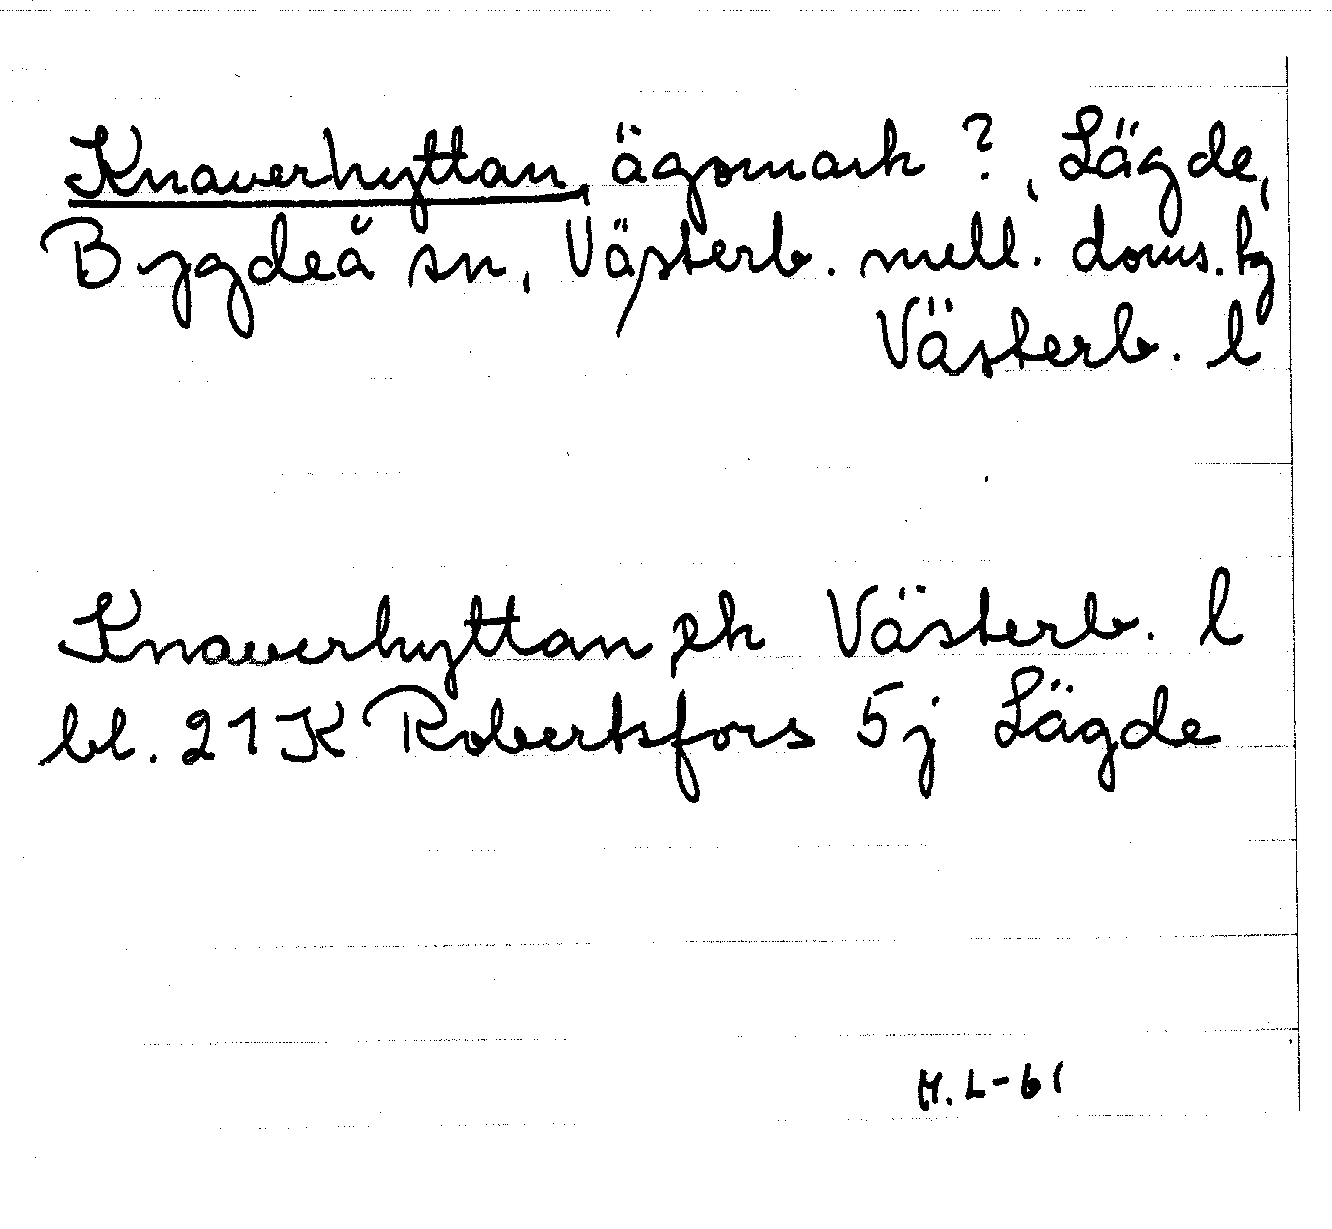 Knaverhyttan, ägomark ?, Lägde,
Bygdeå sn, Västerb. mell. doms. hg
Västerb. l
Knaverhyttan, ek Västerb. l
bl. 21K Robertsfors 5j Lägde
H. L-61